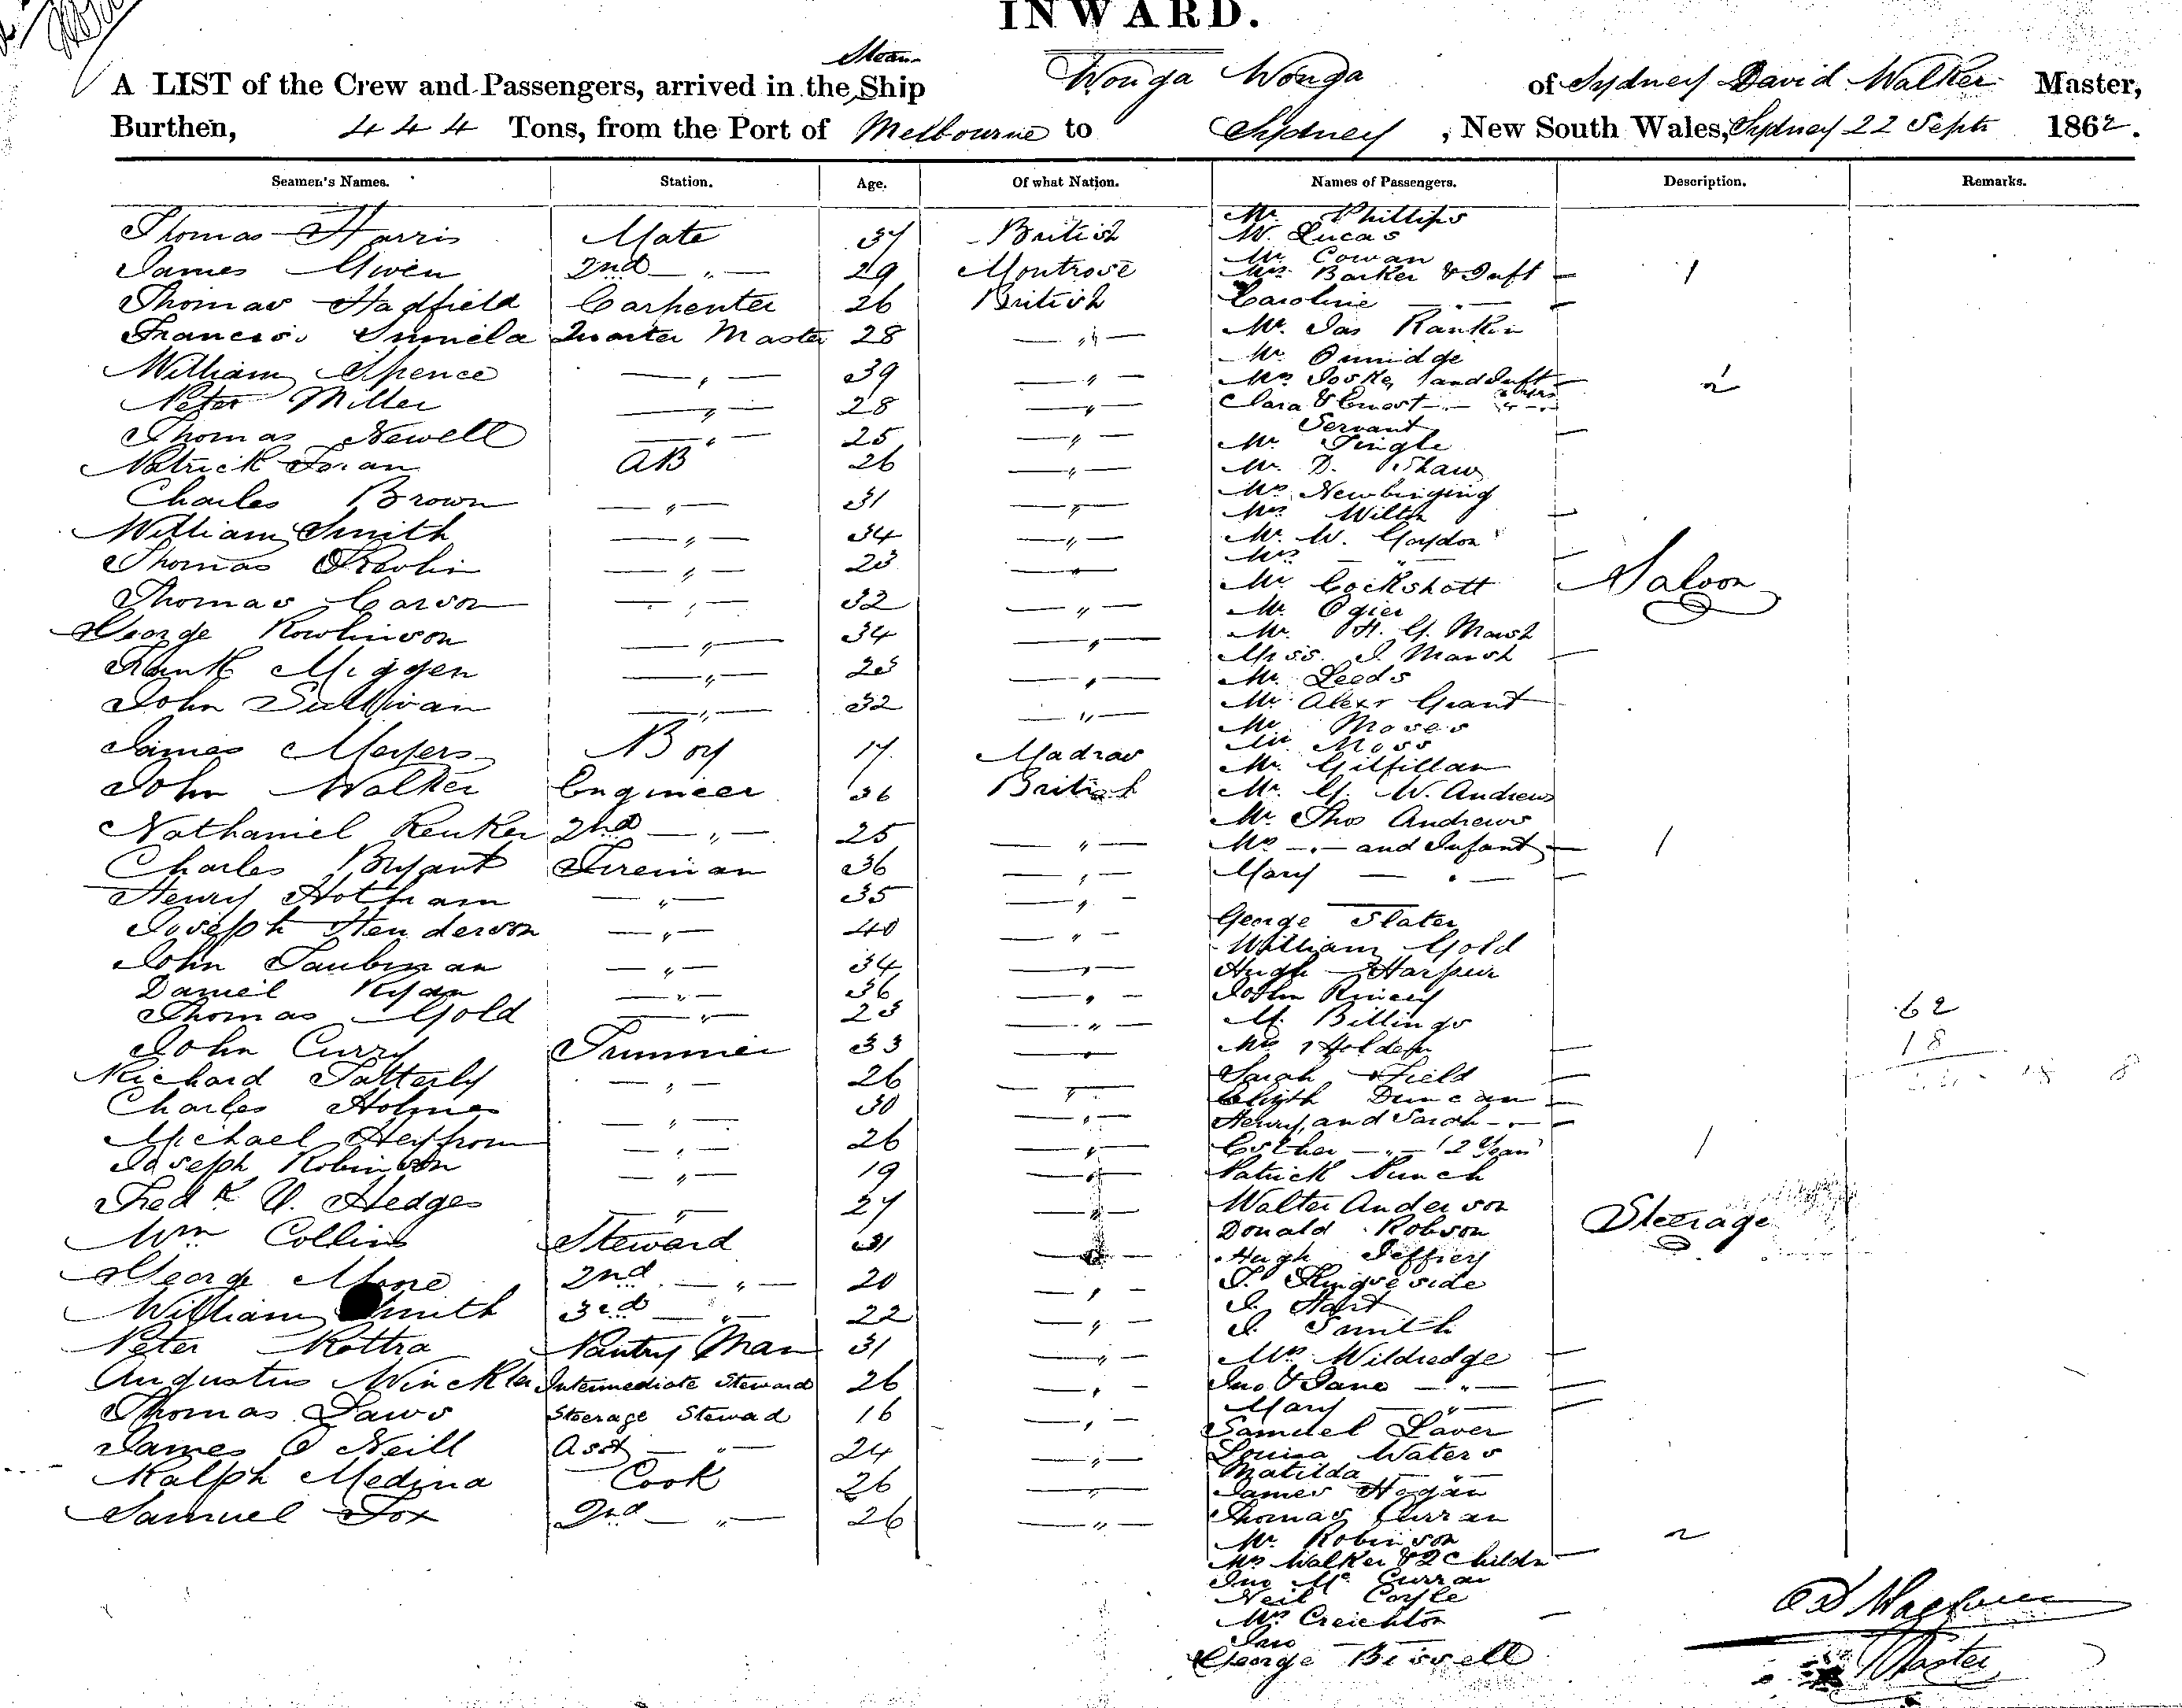 INWARD.
Steam
A LIST of the Crew and Passengers, arrived in the Ship Wonga Wonga of Sydney David Walker Master,
Burthen, 444 Tons, from the Port of Melbourne to Sydney, New South Wales, Sydney 22 Sept 1862.
Seamen's Names. Station. Age. Of what Nation. Names of Passengers. Description. Remarks.
Thomas Harris Mate 37 British
James Gwen 2nd — " — 29 Montrose
Thomas Hadfield Carpenter 26 British
Francis Quarter Master 28 — " —
William Spence — " — 39 — " —
Peter Miller — " — 28 — " —
Thomas Newell — " — 25 — " —
Patrick Foran AB 26 — " —
Charles Brown — " — 31 — " —
William Smith — " — 34 — " —
Thomas — " — 23 — " —
Thomas Carson — " — 32 — " —
George Rowlinson — " — 34 — " —
Frank Miggen — " — 23 — " —
John Sullivan — " — 32 — " —
James Meyers Boy 17 Madras
John Walker Engineer 36 British
Nathaniel 2nd — " — 25 — " —
Charles Bryant Fireman 36 — " —
Henry Hotham — " — 35 — " —
Joseph Henderson — " — 40 — " —
John Taubman — " — 34 — " —
Daniel Ryan — " — 36 — " —
Thomas Gold — " — 23 — " —
John Curry Trimmer 33 — " —
Richard Satterly — " — 26 — " —
Charles Holmes — " — 30 — " —
Michael — " — 26 — " —
Joseph Robinson — " — 19 — " —
Fredk U. Hedges — " — 27 — " —
Wm Collins Steward 31 — " —
George 2nd — " — 20 — " —
William Smith 3rd — " — 22 — " —
Peter Kottra Pantry Man 31 — " —
Augustus Winckler Intermediate Steward 26 — " —
Thomas Laws Steerage Steward 16 — " —
James O Neill Asst — " — 24 — " —
Ralph Medina Cook 26 — " —
Samuel Fox 2nd — " — 26 — " —
Mr. Phillips
Mr. Lucas
Mr. Cowan
Mrs. Barker & Inft — 1
Caroline — " — —
Mr. Jas Rankin
Mr.
Mrs Joske, 1 and Inft — 1
2
Clara & Ernest — " —
Servant —
Mr. Pringle
Mr. D. Shaw
Mr. Newbinging
Mrs Wilton —
Mr. W. Gaydon
Mrs — " — —
Mr Cockshott
Mr. Ogier
Mr. H. G. Marsh
Miss. J. Marsh —
Mr. Leeds
Mr Alexr Grant
Mr. Moses
Mr Moss
Mr. Gilfillan
Mr. G. W. Andrews
Mr. Thos Andrews
Mrs — " — and Infant — 1
Mary — " — —
Saloon
George Slater
William Gold
Hugh Harpur
John
M. Billings
Mrs Holden —
Sarah Field —
Elizth Duncan —
Henry, and Sarah — " — —
Esther — " — (2 Years) 1
Patrick Punch
Walter Anderson
Donald Robson
Hugh Jeffrey
J. Kingseside
J. Hart
J. Smith
Mrs. Wildredge —
Jno & Jane — " — —
Mary — " — —
Samuel Laver
Louisa Waters
Matilda — " —
James Hogan
Thomas Curran
Mr. Robinson
Mrs Walker & 2 Childn — 2
Jno Mc Curran
Neil Coyle
Mrs Creichton —
Jno —
George Bissell
Steerage
62
18
8
Master